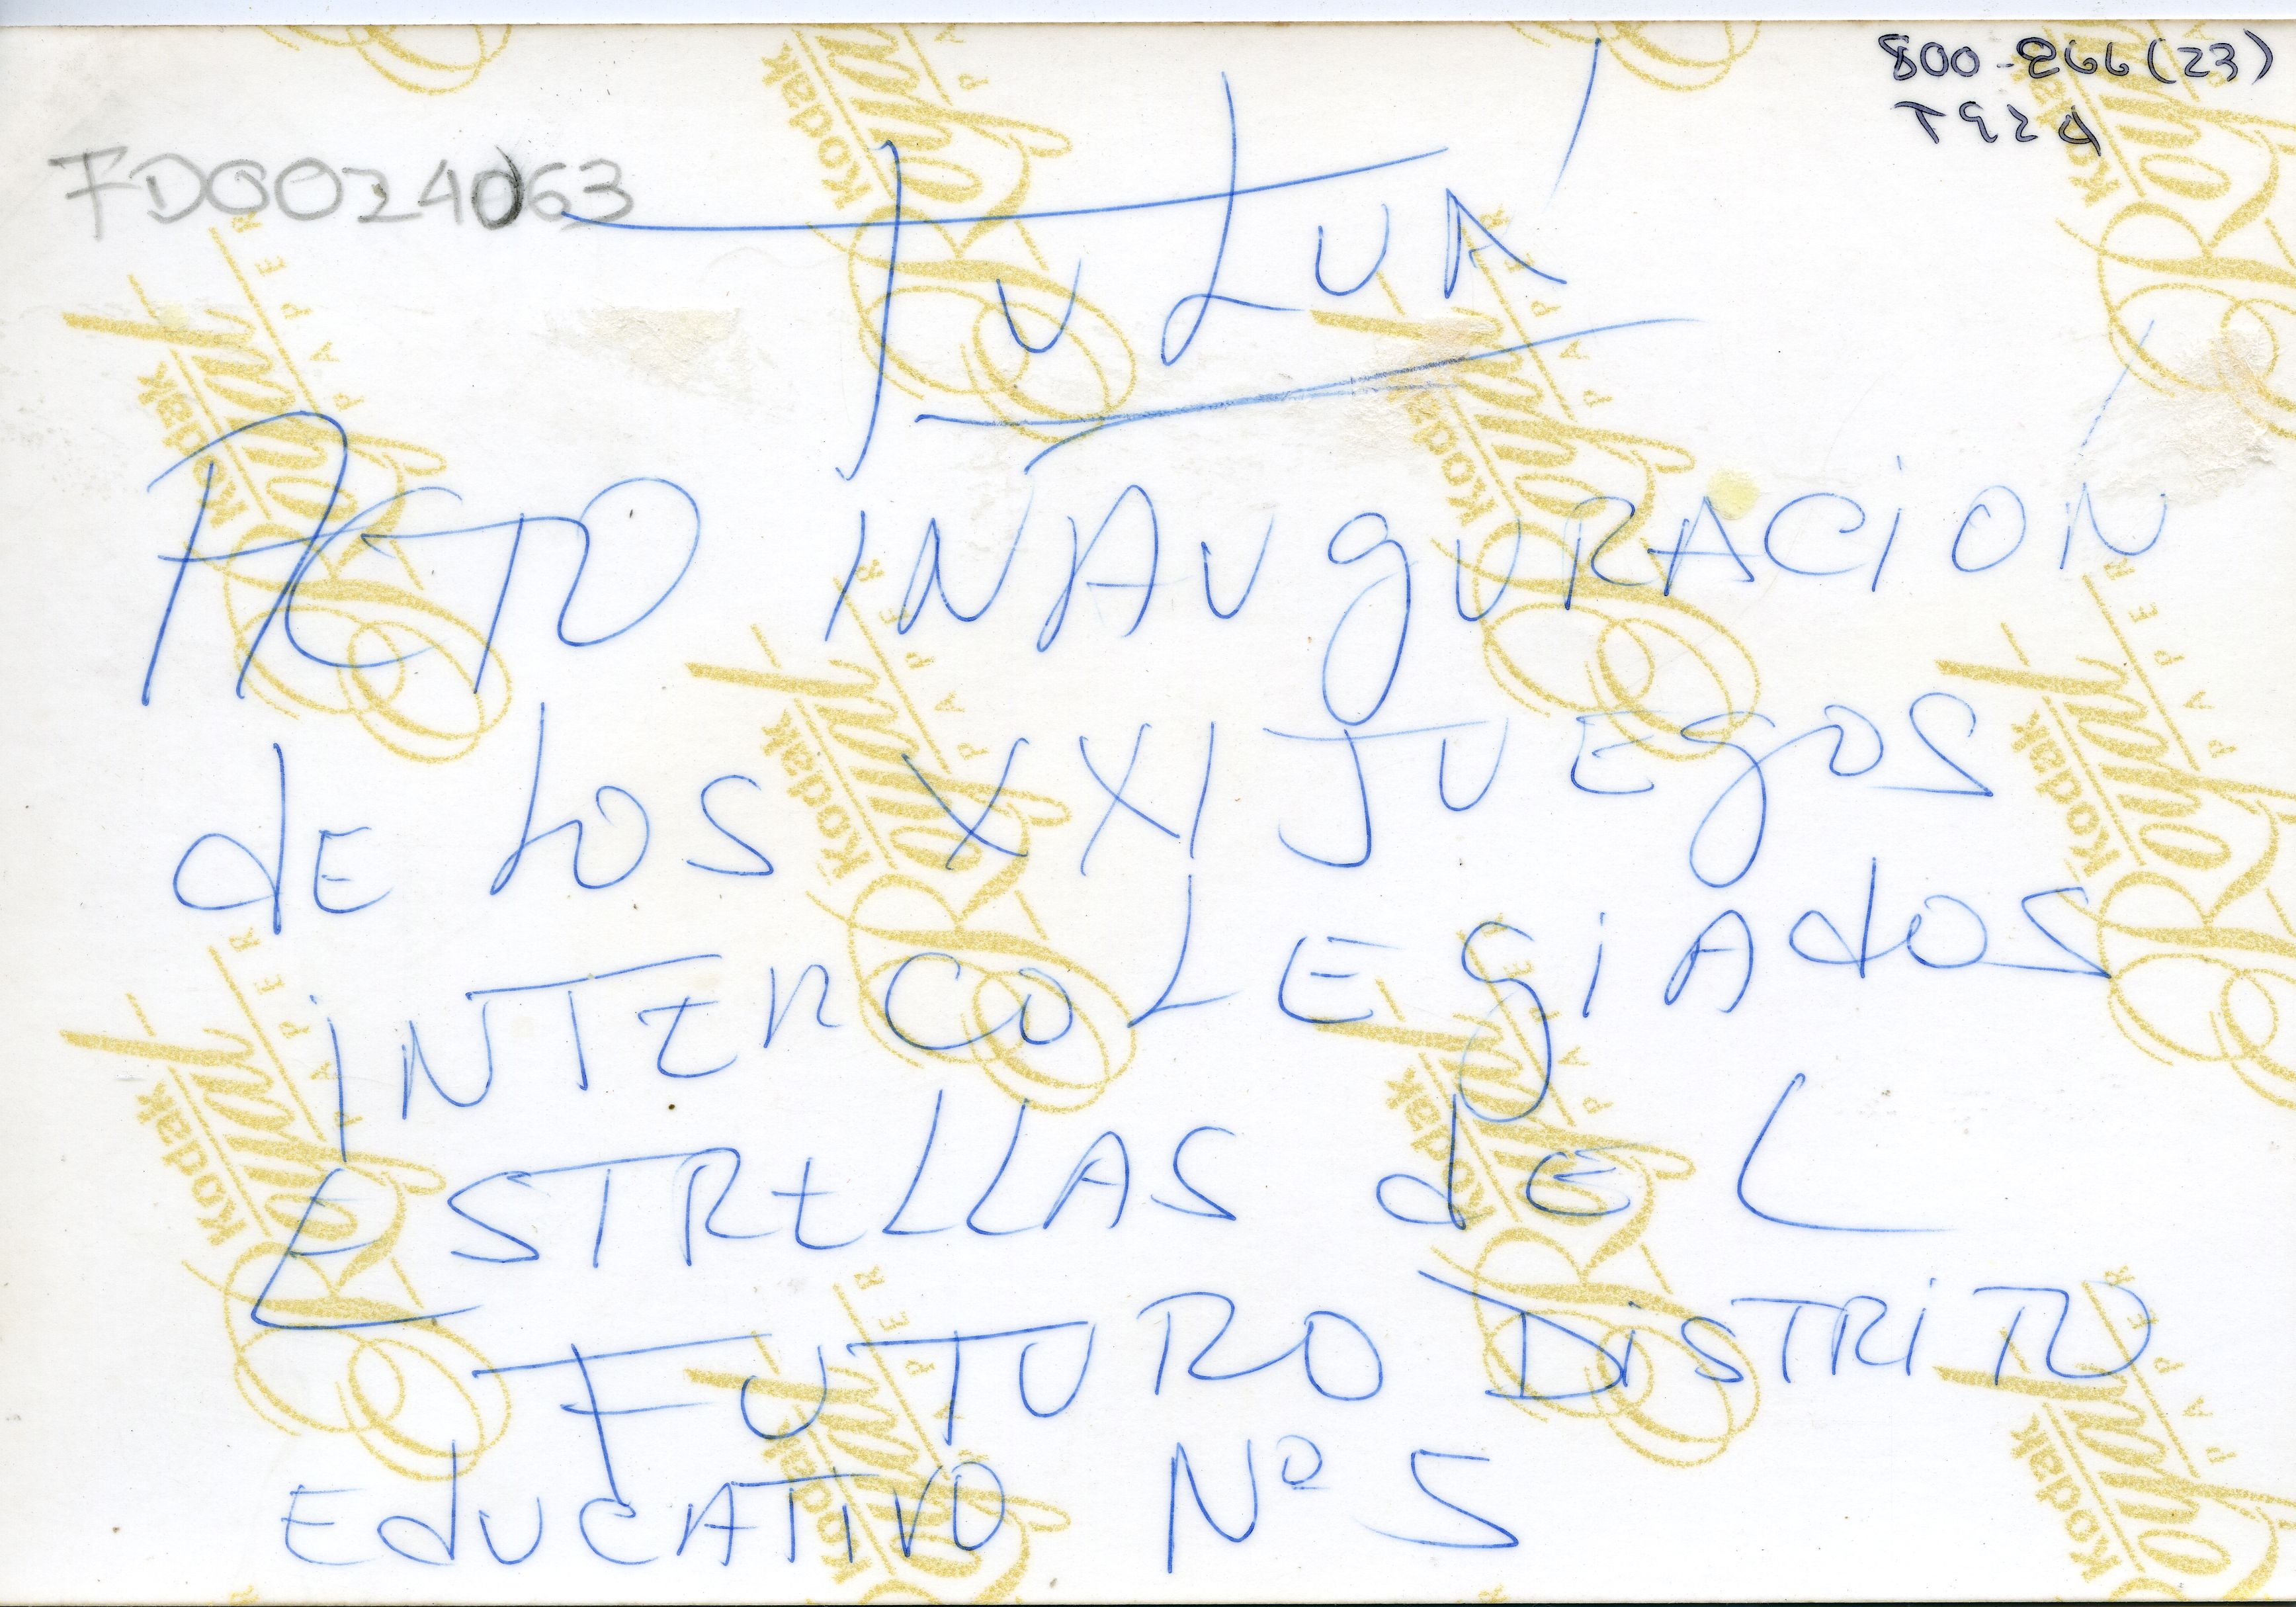 FD0024063
TuLUÁ
ACTO INAUgURACIÓN
dE LOS XXI JUEgOS
INTERCOLEgiAdOS
ESTRELLAS dEL
FUTURO DISTRITO
EdUCATIVO Nº 5
Kodak
Royal
PAPER